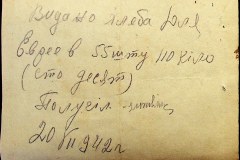 Видано хліба для
Евдеев в 55 шту 110 кіло
(сто десят)
Полусіл
20 VII 942 г